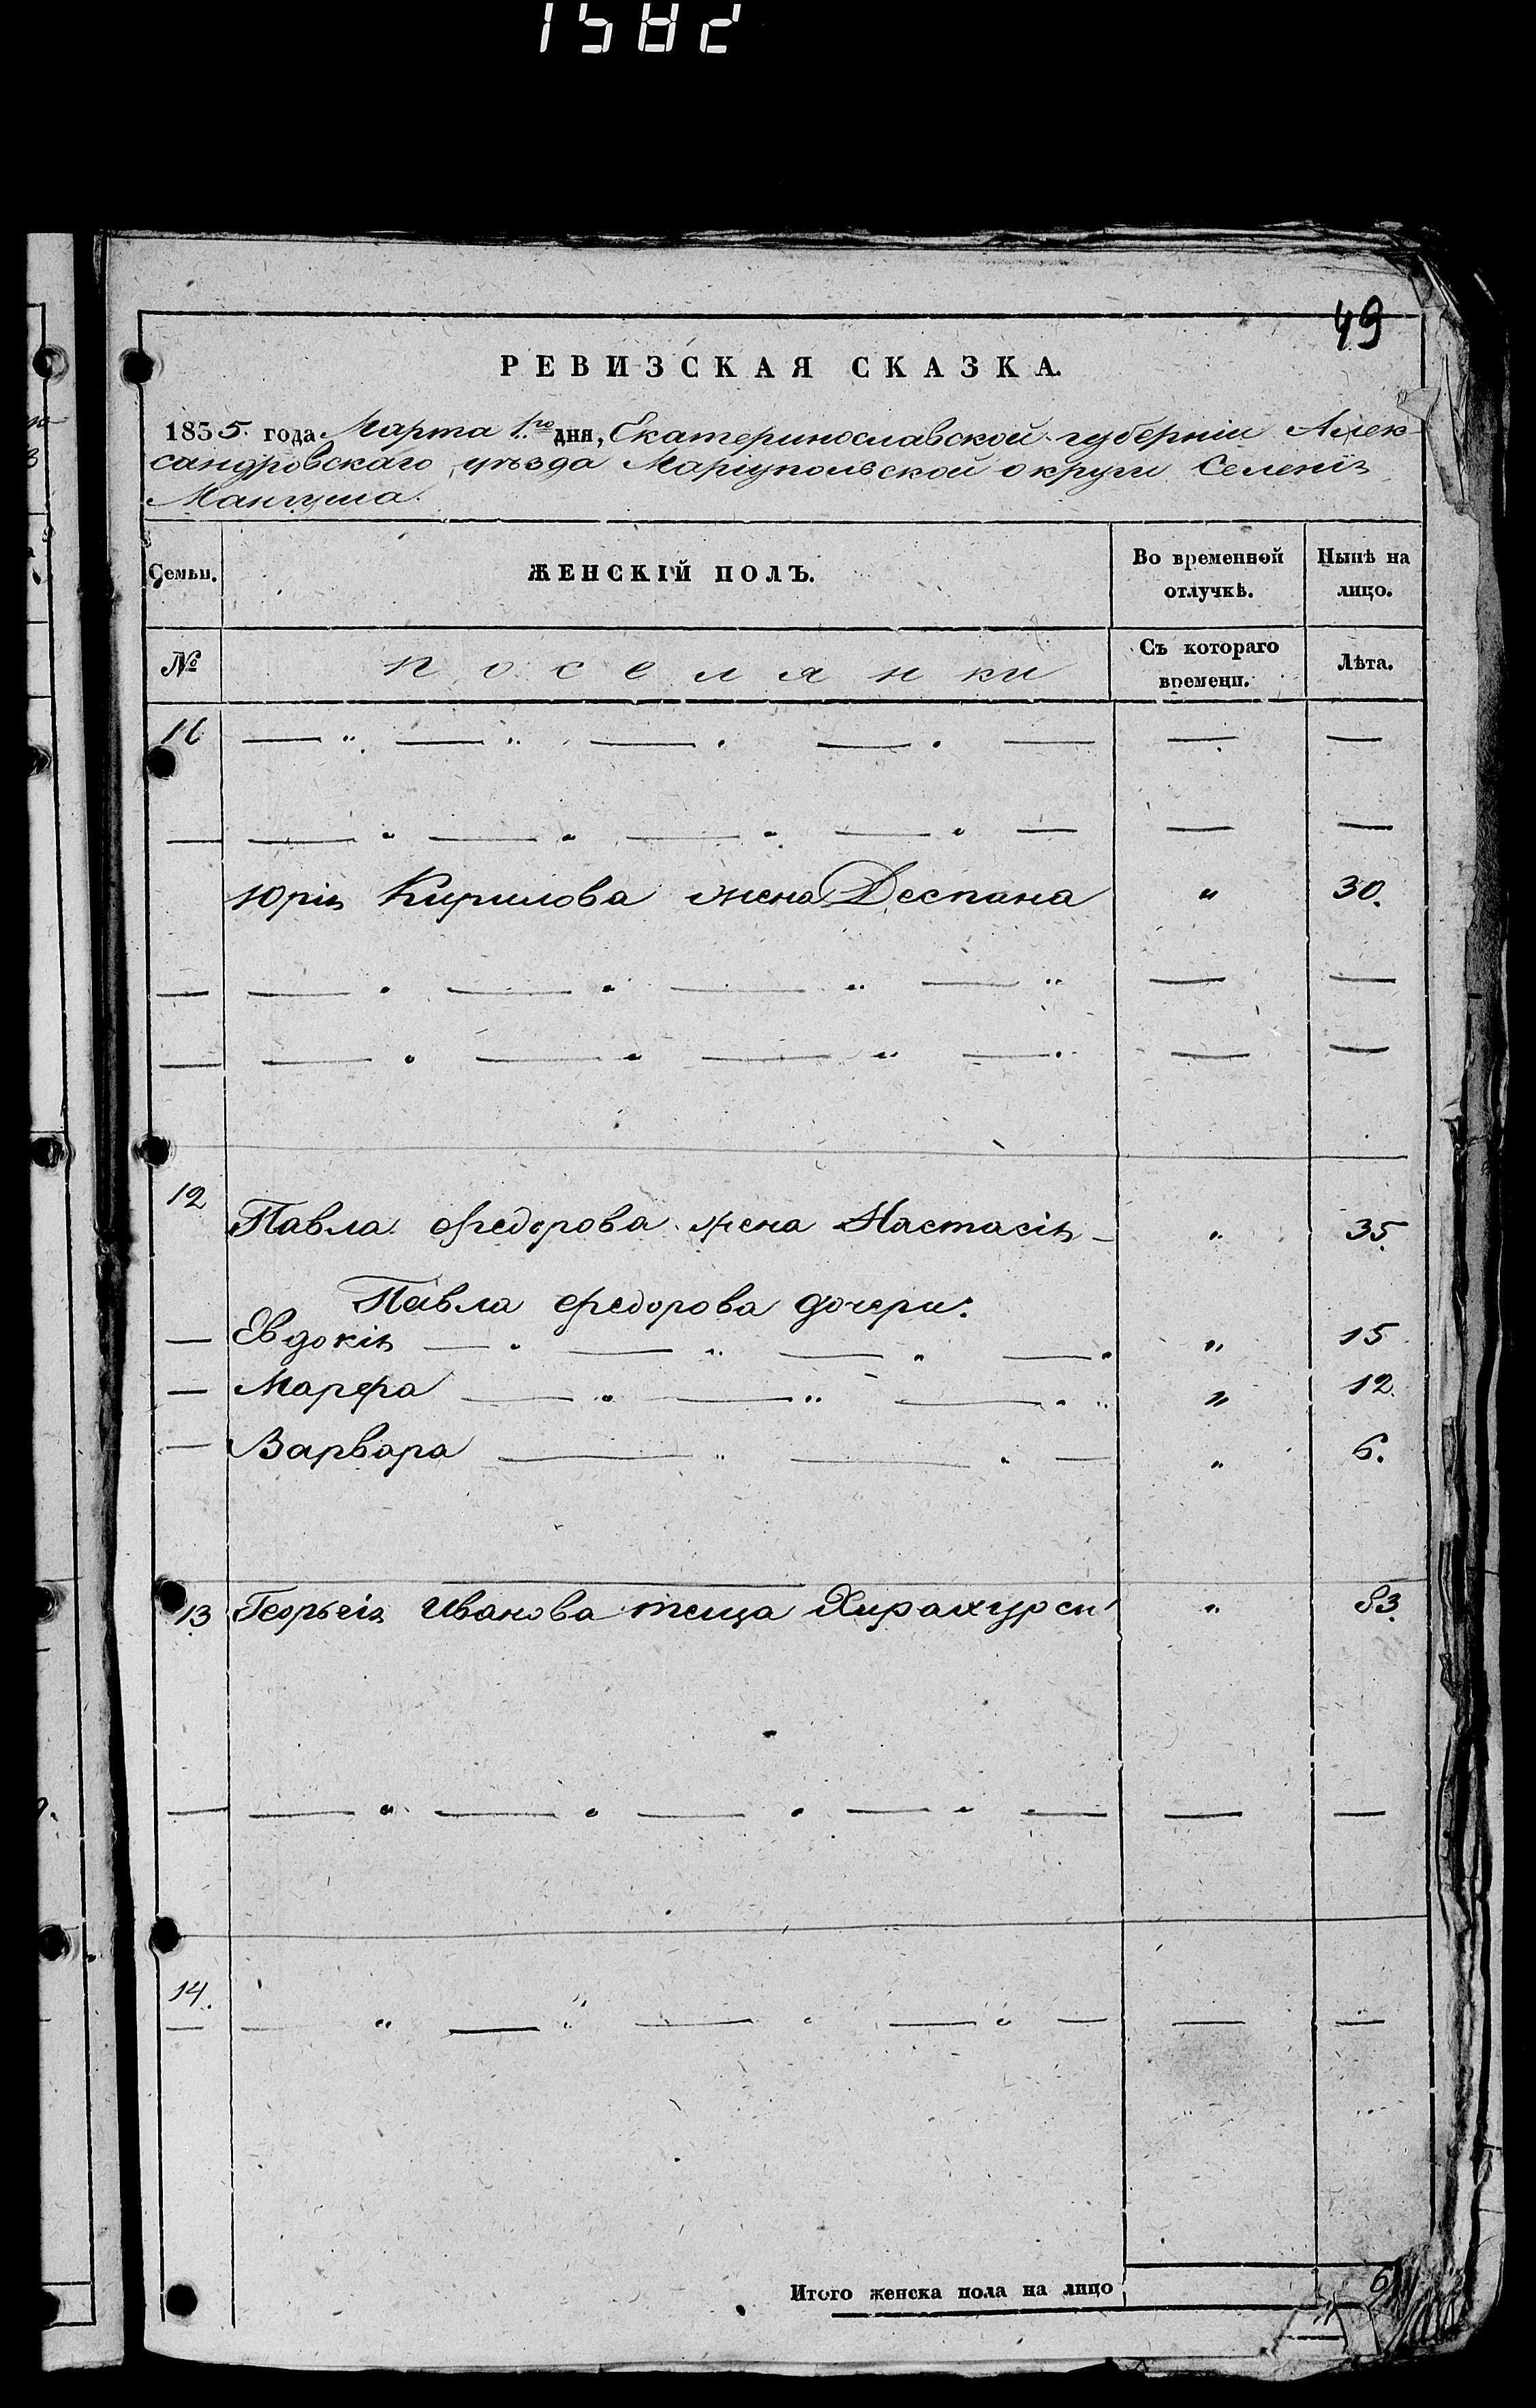 1582
49
РЕВИЗСКАЯ СКАЗКА.
1835 года Марта 1го дня, Екатеринославской губерніи Алек-
сандровскаго уѣзда Маріупольской округи Селенія
Мангуша.
Семьи. ЖЕНСКІЙ ПОЛЪ. Во временной отлучкѣ. Нынѣ на лицо.
№ поселянки Съ котораго времени. Лѣта.
Юрія Кирилова жена Деспана " 30.
12 Павла Федорова жена Настасія " 35.
Павла Федорова дочери:
— Евдокія " 15
— Марфа " 12.
— Варвара " 6.
13 Георгія Иванова теща " 83.
14.
Итого женска пола на лицо 6